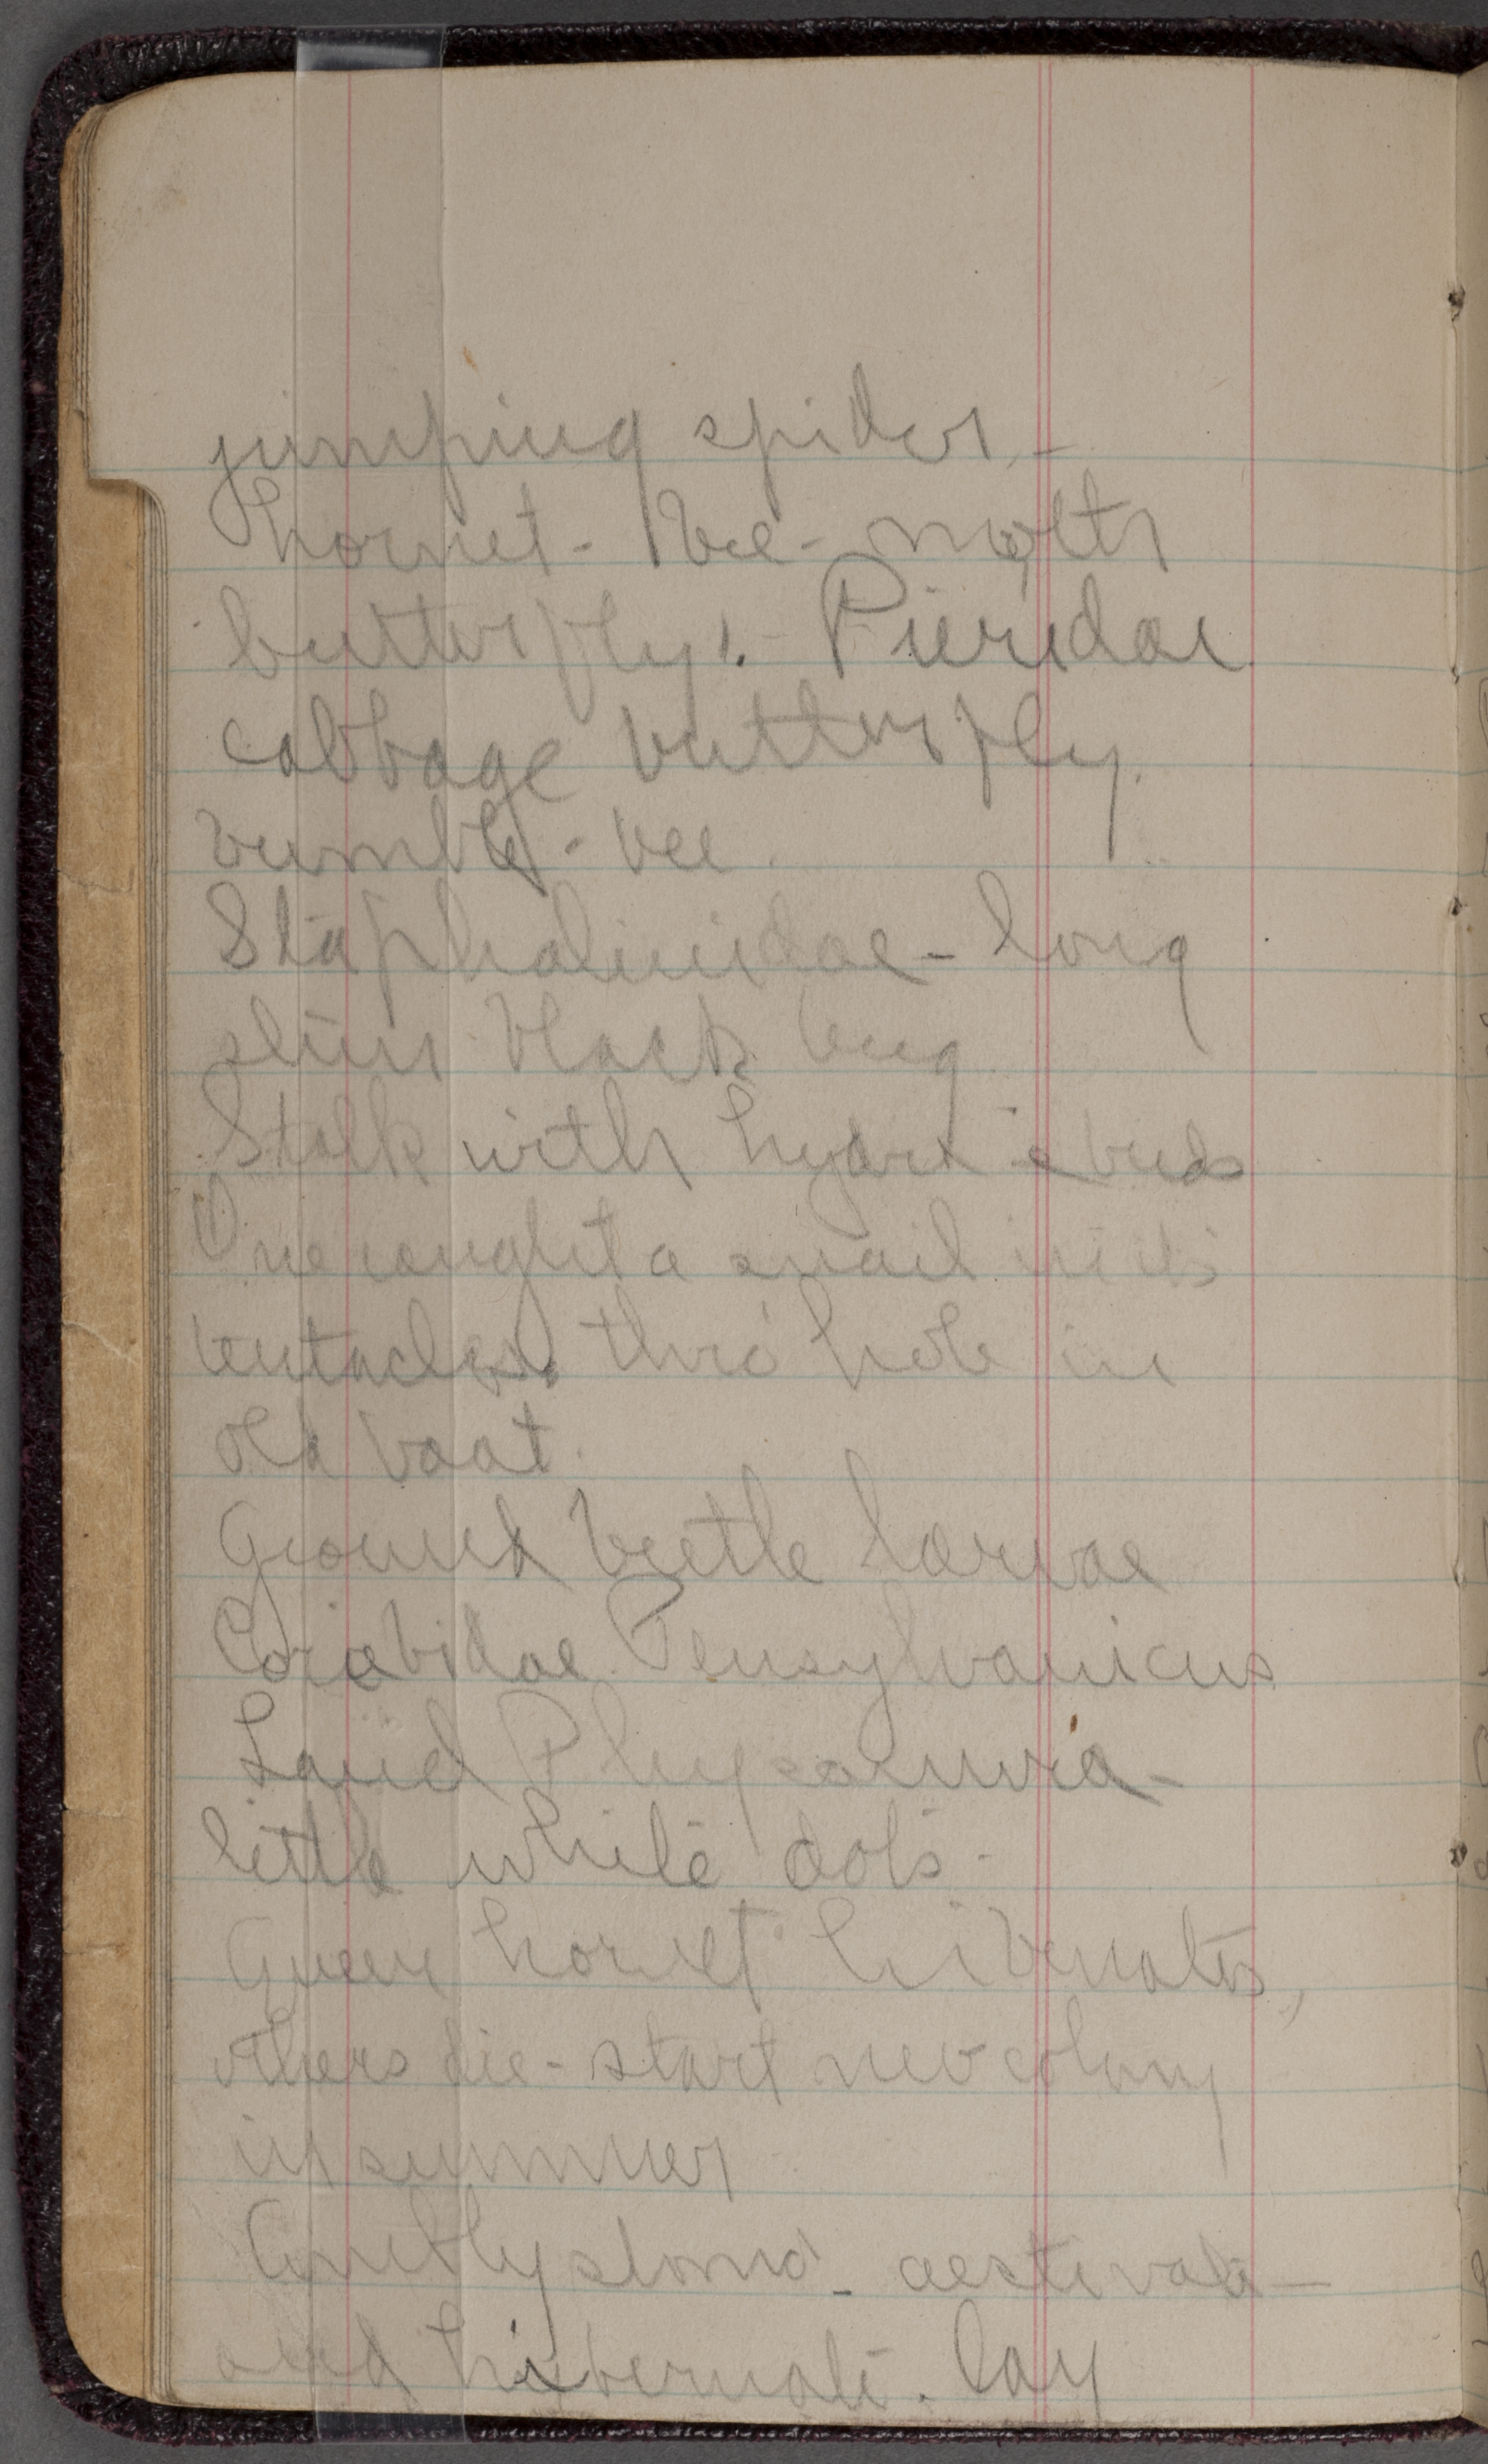 jumping spider -
hornet - bee - moth
butterfly! - Pieridae
cabbage butterfly.
bumble-bee.
Staphalinidae - long
slim black bug
Stalk with hydra & buds
One caught a snail in its
tentacles. thro' hole in
old boat.
Ground beetle larvae
Carabidae Pensylvanicus
Land
little white dots -
Queen hornet hibernates,
others die - start new colony
in summer
Amblystoma - aestivate -
and hibernate. lay